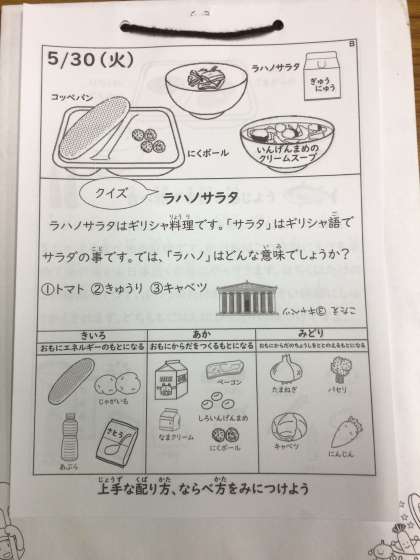 B
5/30(火)
ラハノサラタ
ぎゅう
にゅう
コッペパン
にくボール
いんげんまめの
クリームスープ
クイズ
ラハノサラタ
ラハノサラタはギリシャ料理です。「サラタ」はギリシャ語で
サラダの事です。では、「ラハノ」はどんな意味でしょうか?
①トマト ②きゅうり ③キャベツ
こたえ ③キャベツ
きいろ
おもにエネルギーのもとになる
じゃがいも
さとう
あぶら
あか
おもにからだをつくるもとになる
ベーコン
しろいんげんまめ
なまクリーム
にくボール
みどり
おもにからだのちょうしをととのえるもとになる
たまねぎ
パセリ
キャベツ
にんじん
上手な配り方、ならべ方をみにつけよう